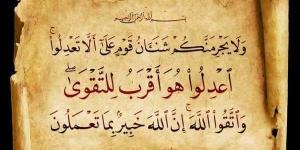 بسم الله الرحمن الرحيم
وَلَا يَجْرِمَنَّكُمْ شَنَـَٔانُ قَوْمٍ عَلَىٰٓ أَلَّا تَعْدِلُوا۟ ۚ
ٱعْدِلُوا۟ هُوَ أَقْرَبُ لِلتَّقْوَىٰ ۖ
وَٱتَّقُوا۟ ٱللَّهَ ۚ إِنَّ ٱللَّهَ خَبِيرٌۢ بِمَا تَعْمَلُونَ